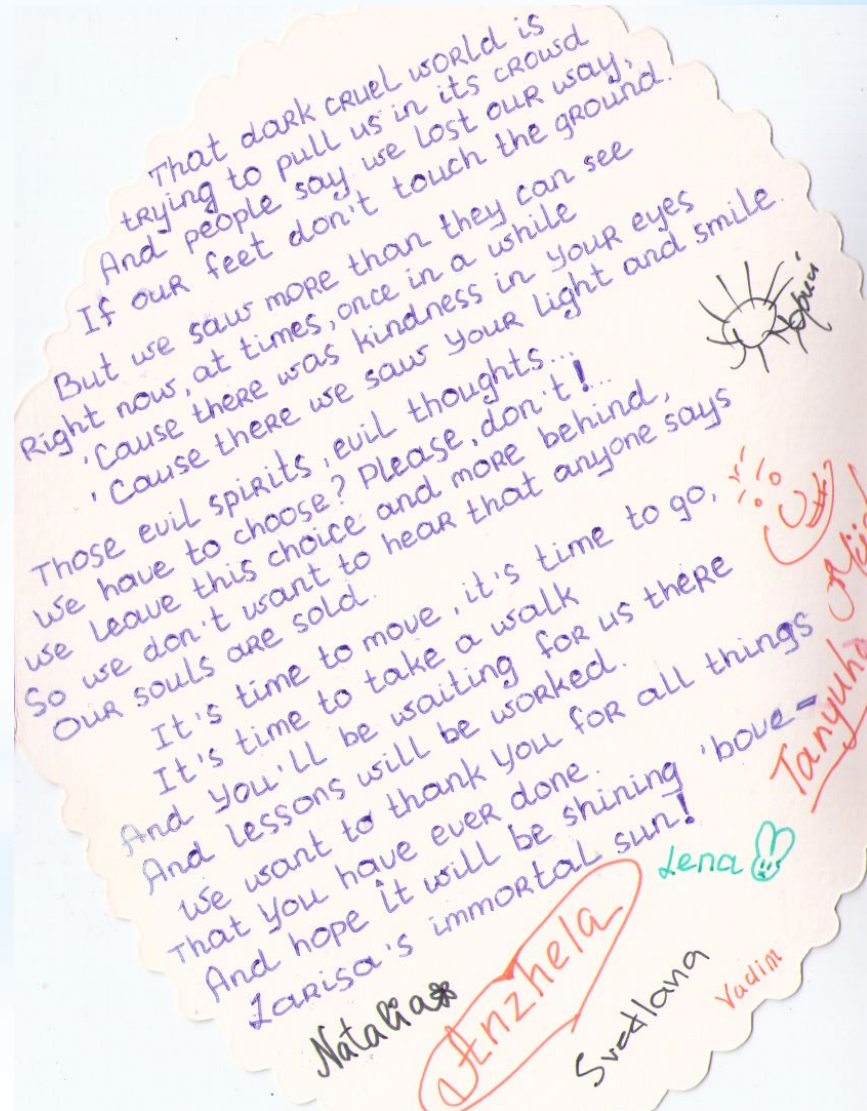 That dark cruel world is
trying to pull us in its crowd
And people say we lost our way,
If our feet don't touch the ground.
But we saw more than they can see
Right now, at times, once in a while
'Cause there was kindness in your eyes
'Cause there we saw your light and smile.
Those evil spirits, evil thoughts...
We have to choose? Please, don't!...
We leave this choice and more behind,
So we don't want to hear that anyone says
Our souls are sold.
It's time to move, it's time to go,
It's time to take a walk
And you'll be waiting for us there
And lessons will be worked.
We want to thank you for all things
That you have ever done.
And hope it will be shining 'bove –
Larisa's immortal sun!
Tanyuha
Lena
Natalia
Anzhela
Svetlana
Vadim